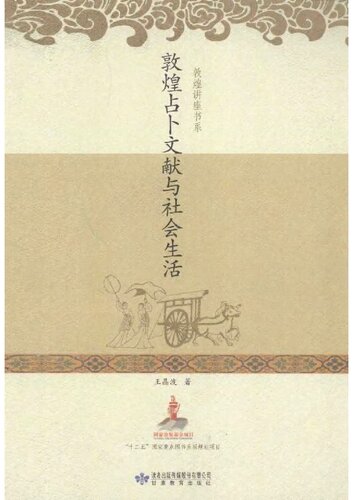 敦煌讲座书系
敦煌占卜文献与社会生活
王晶波 著
国家出版基金项目
“十二五”国家重点图书出版规划项目
读者出版传媒股份有限公司
甘肃教育出版社